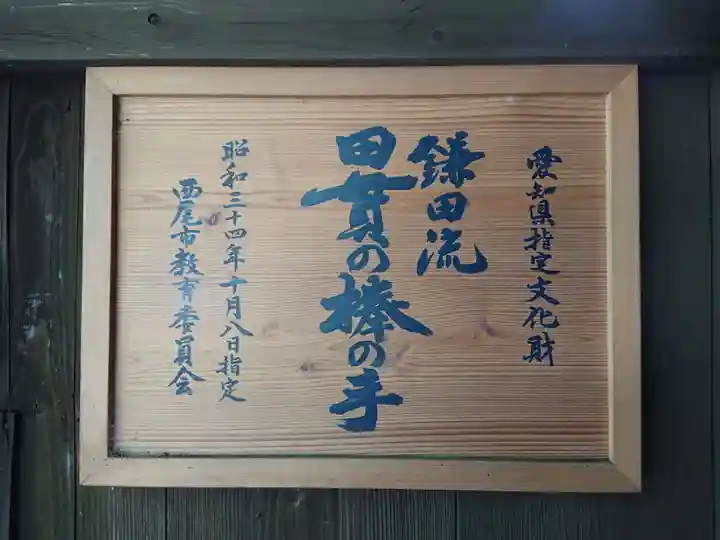 愛知県指定文化財
鎌田流
田貫の棒の手
昭和三十四年十月八日指定
西尾市教育委員会